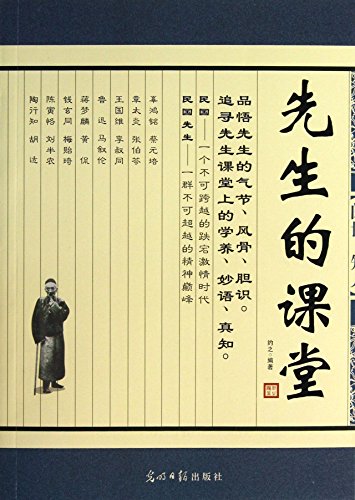 先生的课堂
品悟先生的气节、风骨、胆识。
追寻先生课堂上的学养、妙语、真知。
民国——一个不可跨越的跌宕激情时代
民国先生——一群不可超越的精神巅峰
辜鸿铭 蔡元培
章太炎 张伯苓
王国维 李叔同
鲁迅 马叙伦
蒋梦麟 黄侃
钱玄同 梅贻琦
陈寅恪 刘半农
陶行知 胡适
的之·编著
光明日报出版社